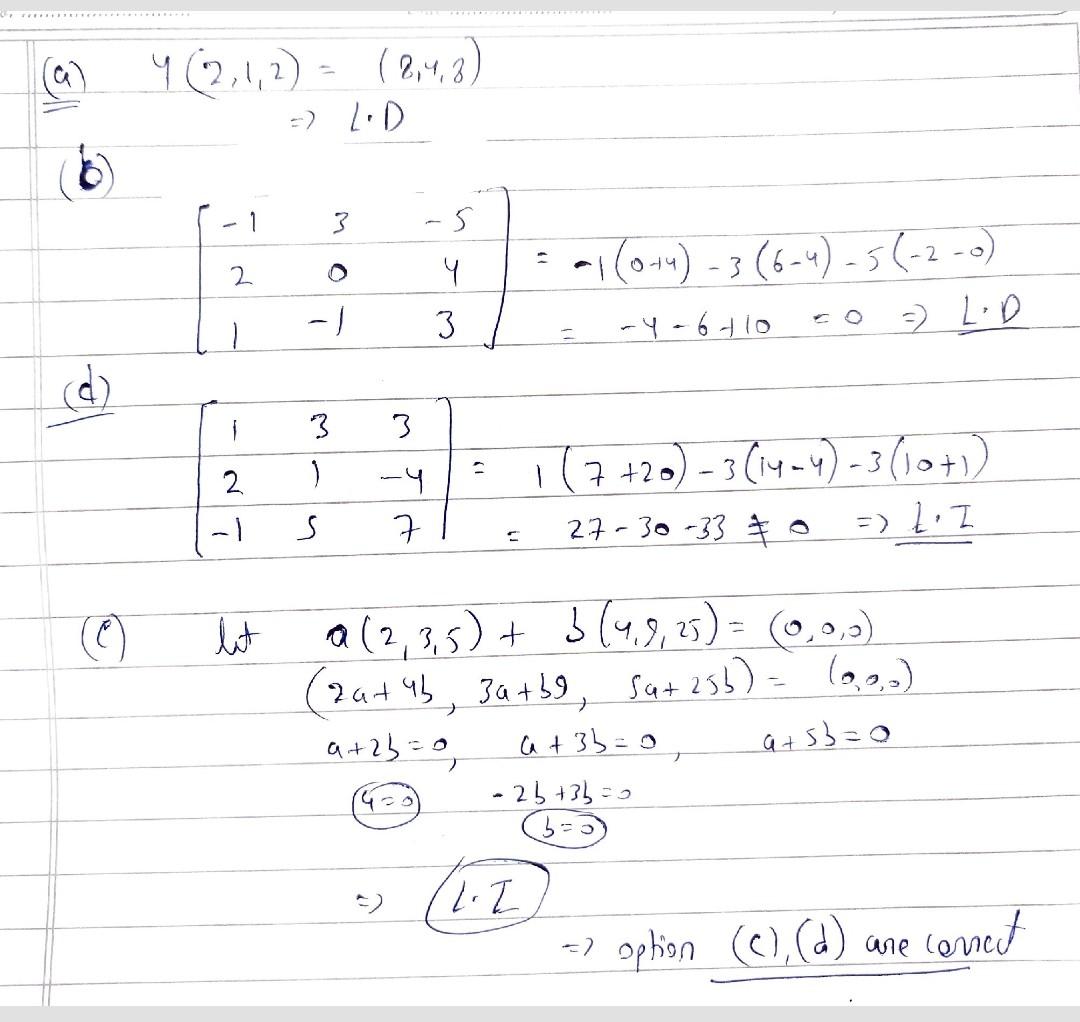 (a) 4(2,1,2) = (8,4,8)
=> L.D
(b)
[-1 3 -5
2 0 4
1 -1 3] = -1(0+4) - 3(6-4) - 5(-2-0)
= -4 - 6 + 10 = 0 => L.D
(d)
[1 3 3
2 1 -4
-1 5 7] = 1(7+20) - 3(14-4) - 3(10+1)
= 27 - 30 - 33 ≠ 0 => L.I
(c) let a(2,3,5) + b(4,9,25) = (0,0,0)
(2a+4b, 3a+b9, 5a+25b) = (0,0,0)
a+2b=0, a+3b=0, a+5b=0
a=0 -2b+3b=0
b=0
=> L.I
=> option (c),(d) are correct